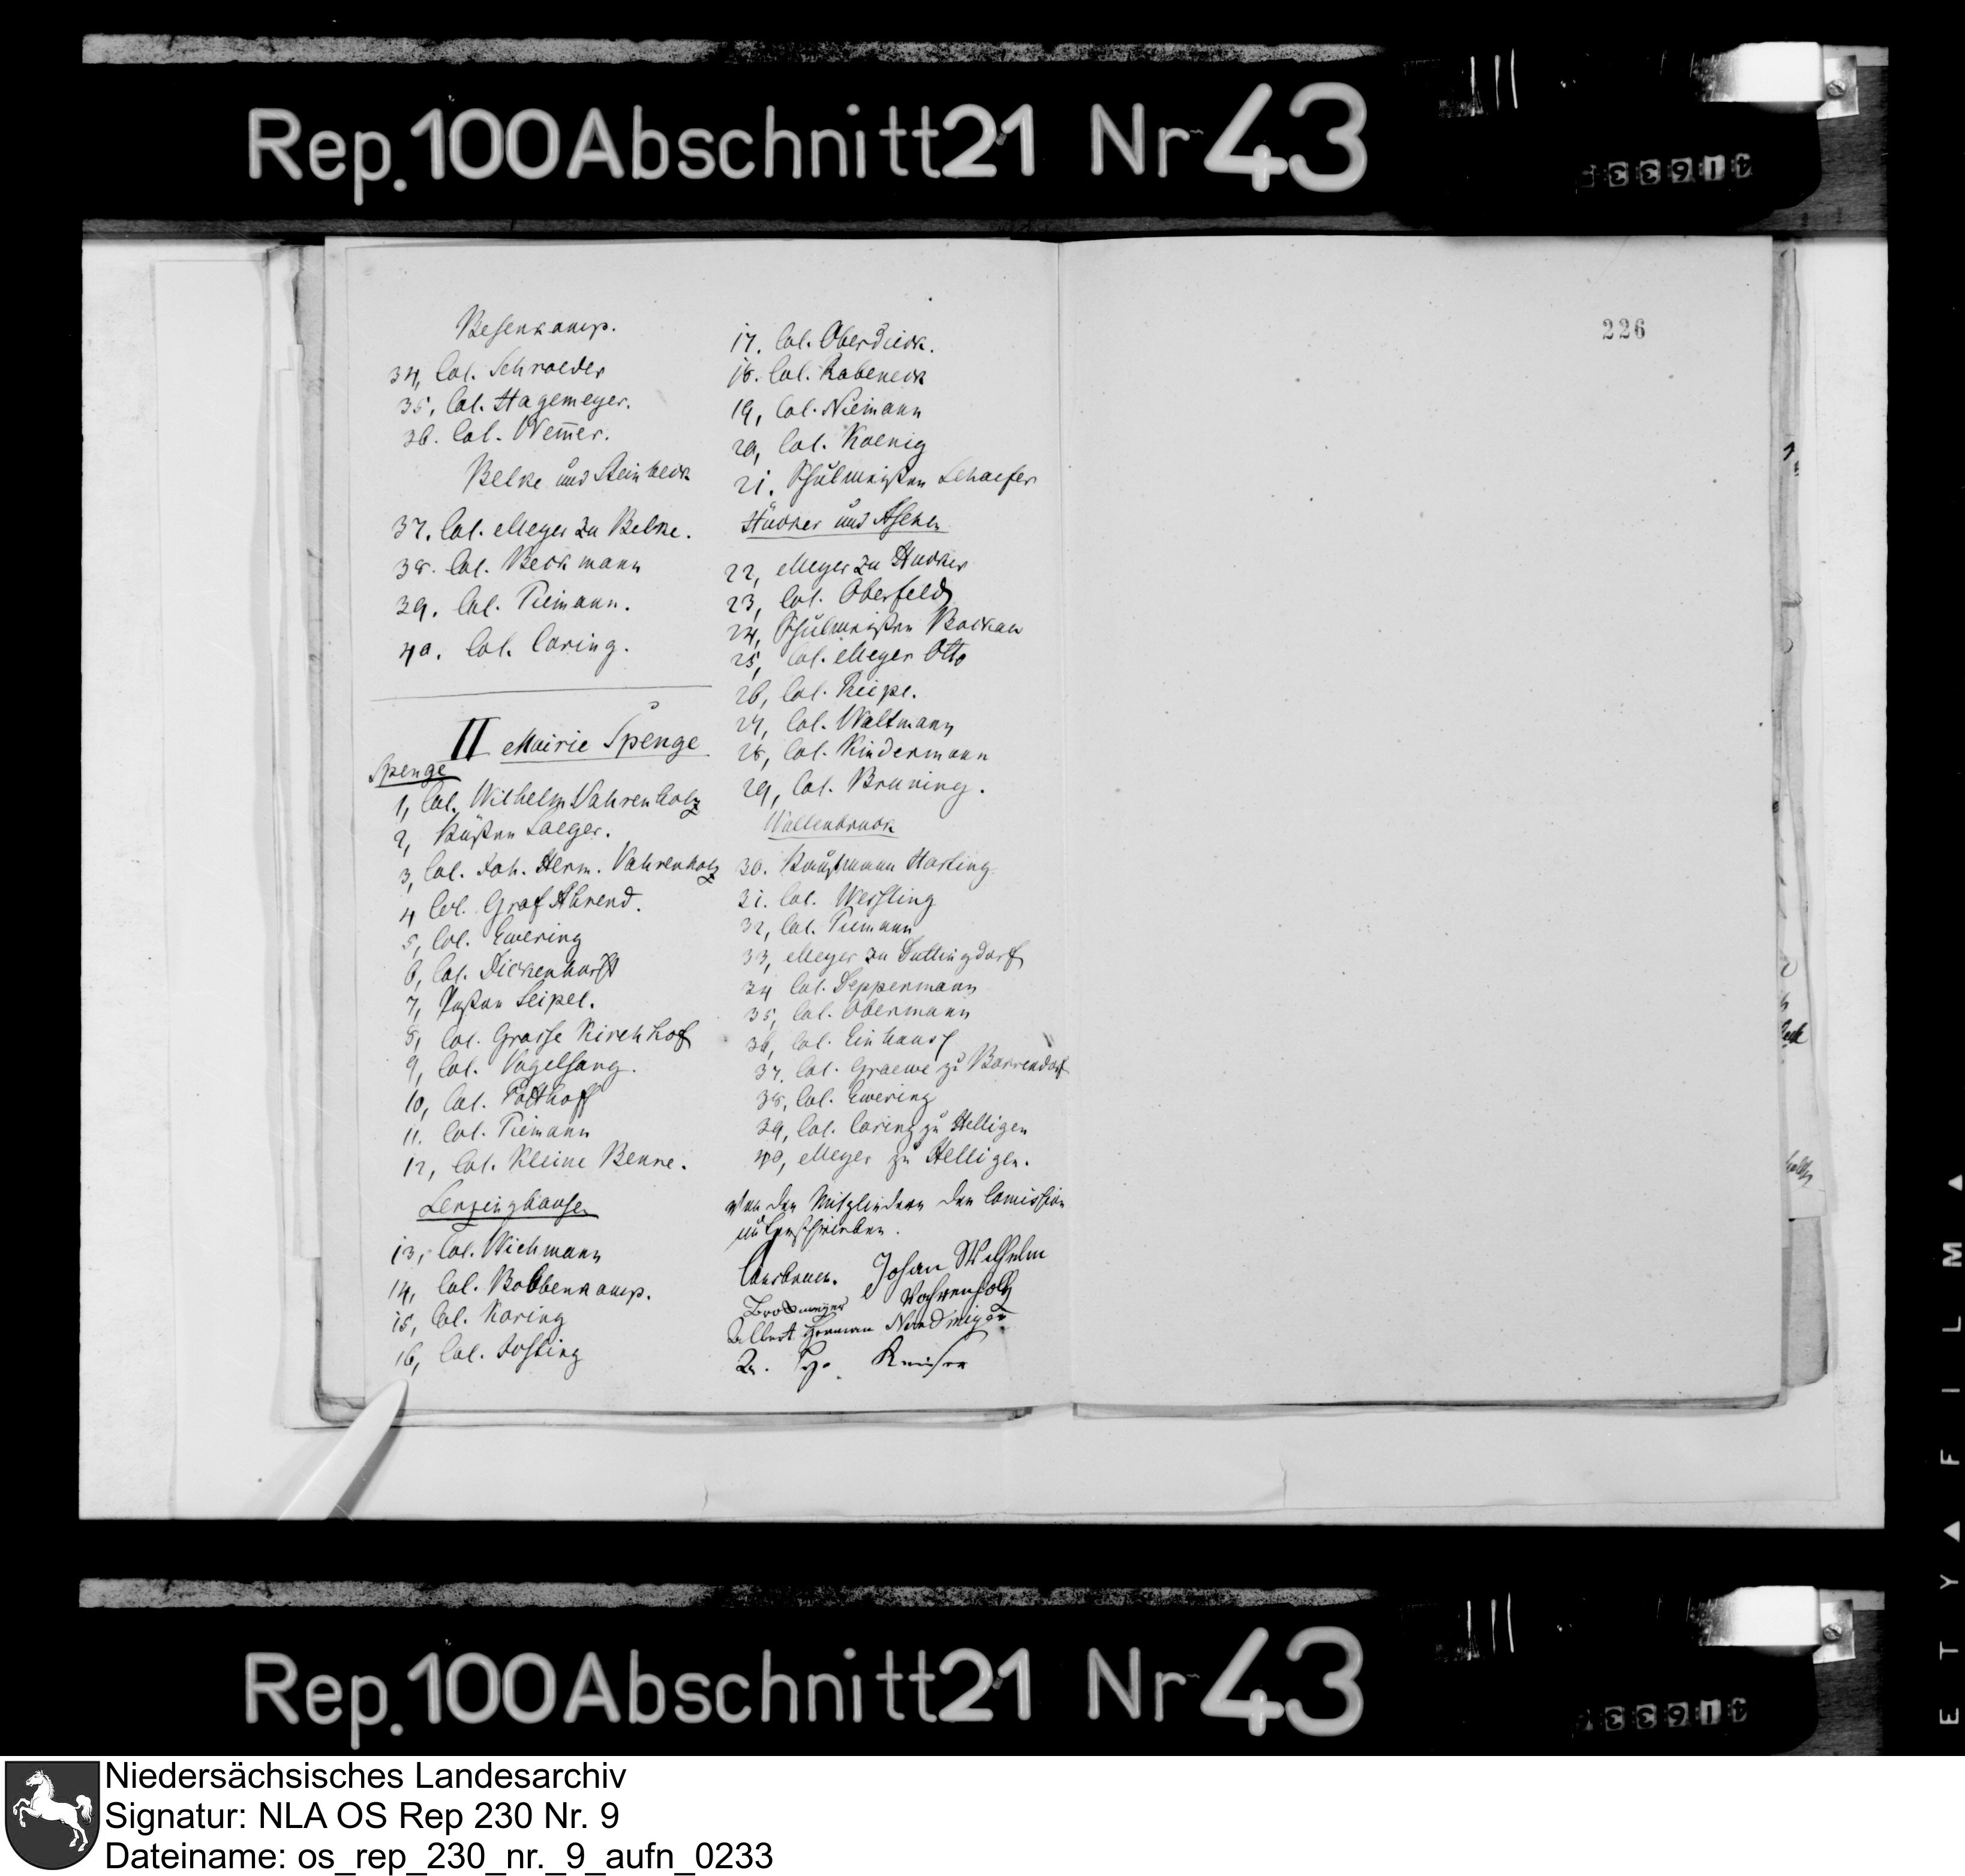 Rep. 100 Abschnitt 21 Nr 43
226
Besenkamp.
34, Col. Schroeder
35, Col. Hagemeyer.
36. Col. Wem̄er.
Belke und Steinbeck
37. Col. Meyer zu Belke.
38. Col. Beckmann
39. Col. Tiemann.
40. Col. Coring.
II Mairie Spenge
Spenge
1, Col. Wilhelm Vahrenholz
2, Küster Saeger.
3, Col. Joh. Herm. Vahrenholz
4 Col. Graf Ahrend.
5, Col. Ewering
6, Col. Dickenhorst
7, Pastor Seipel.
8, Col. Grosse Kirchhof
9, Col. Vogelsang.
10, Col. Potthoff
11. Col. Tiemann
12, Col. Kleine Benne.
Lenzinghausen
13, Col. Wichmann
14, Col. Bobbenkamp.
15, Col. Koring
16, Col. Josting
17. Col. Oberdieck.
18. Col. Rabeneck
19, Col. Niemann
20, Col. Koenig
21. Schulmeister Schaefer
Hücker und Aschen
22, Meyer zu Hucker
23, Col. Oberfeld
24, Schulmeister
25, Col. Meyer Otto
26, Col. Keipe.
27, Col. Waltmann
28, Col. Kindermann
29, Col. Bruning.
Wallenbruck
30. Kaufmann Harting
31. Col. Wessling
32, Col. Tiemann
33, Meyer zu Duttingdorf
34 Col. Deppermann
35, Col. Obermann
36, Col. Einhaus
37. Col. Graewe zu Barrendorf
38, Col. Ewering
39, Col. Coring zu Helligen
40, Meyer zu Helligen.
Von den Mitgliedern der Comission
unterschrieben.
Consbruch. Johan Wilhelm
Vahrenholz
Brockmeyer
Albert Herman Nordmeyer
Keiser
Rep. 100 Abschnitt 21 Nr 43
Niedersächsisches Landesarchiv
Signatur: NLA OS Rep 230 Nr. 9
Dateiname: os_rep_230_nr._9_aufn_0233